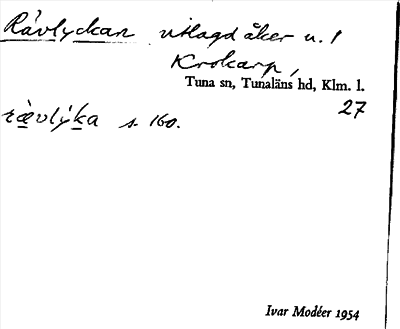 Rävlyckan utlagd åker u. 1
Krokarp,
Tuna sn, Tunaläns hd, Klm. l.
27
rævlýka s. 160.
Ivar Modéer 1954